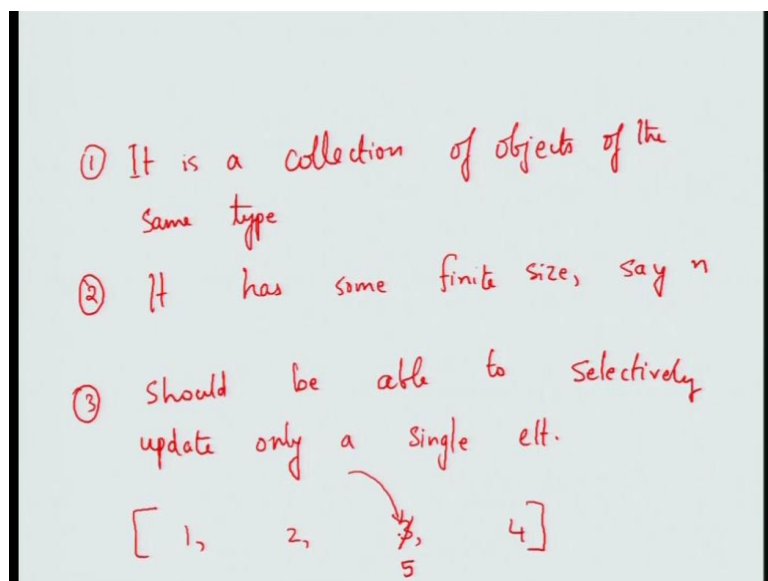 ① It is a collection of objects of the
same type
② It has some finite size, say n
③ Should be able to selectively
update only a single elt.
[ 1, 2, 3, 4 ]
5